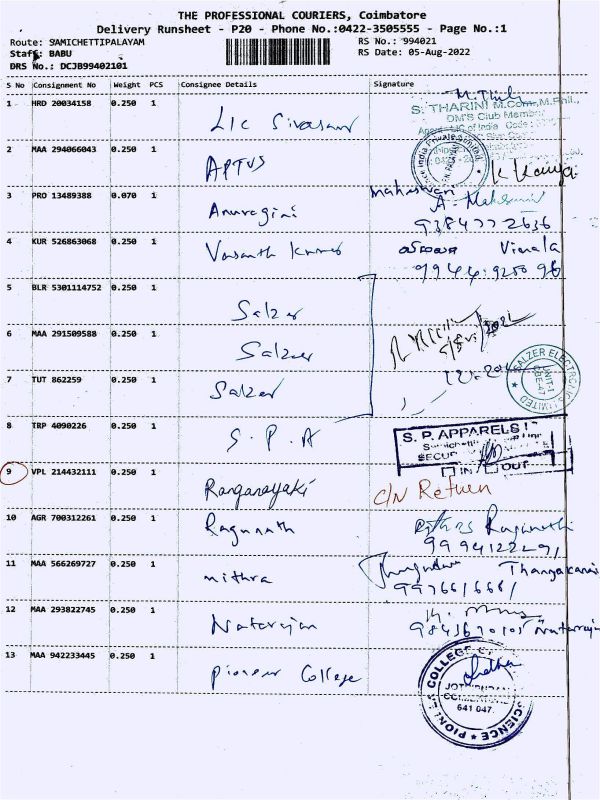 THE PROFESSIONAL COURIERS, Coimbatore
Delivery Runsheet - P20 - Phone No.:0422-3505555 - Page No.:1
Route: SAMICHETTIPALAYAM
RS No.: 994021
Staff: BABU
RS Date: 05-Aug-2022
DRS No.: DCJB99402101
S No Consignment No Weight PCS Consignee Details Signature
1 HRD 20034158 0.250 1 LIC Sivasam
S. THARINI M.Com.,M.Phil.,
DM'S Club Member
2 MAA 294066043 0.250 1 APTUS
3 PRO 13489388 0.070 1 Anuragini
9384772636
4 KUR 526863068 0.250 1 Vasanth Kumar Vimala
99449250096
5 BLR 5301114752 0.250 1 Salzer
6 MAA 291509588 0.250 1 Salzer
SALZER ELECTRONICS LIMITED
UNIT-1
CBE-47
7 TUT 862259 0.250 1 Salzer
8 TRP 4090226 0.250 1 S.P.A
S. P. APPARELS
IN OUT
9 VPL 214432111 0.250 1 Ranganayaki C/N Return
10 AGR 700312261 0.250 1 Ragunath
9994122291
11 MAA 566269727 0.250 1 mithra
12 MAA 293822745 0.250 1 Natarajan
13 MAA 942233445 0.250 1 Pioneer College
PIONEER COLLEGE
SCIENCE
641 047